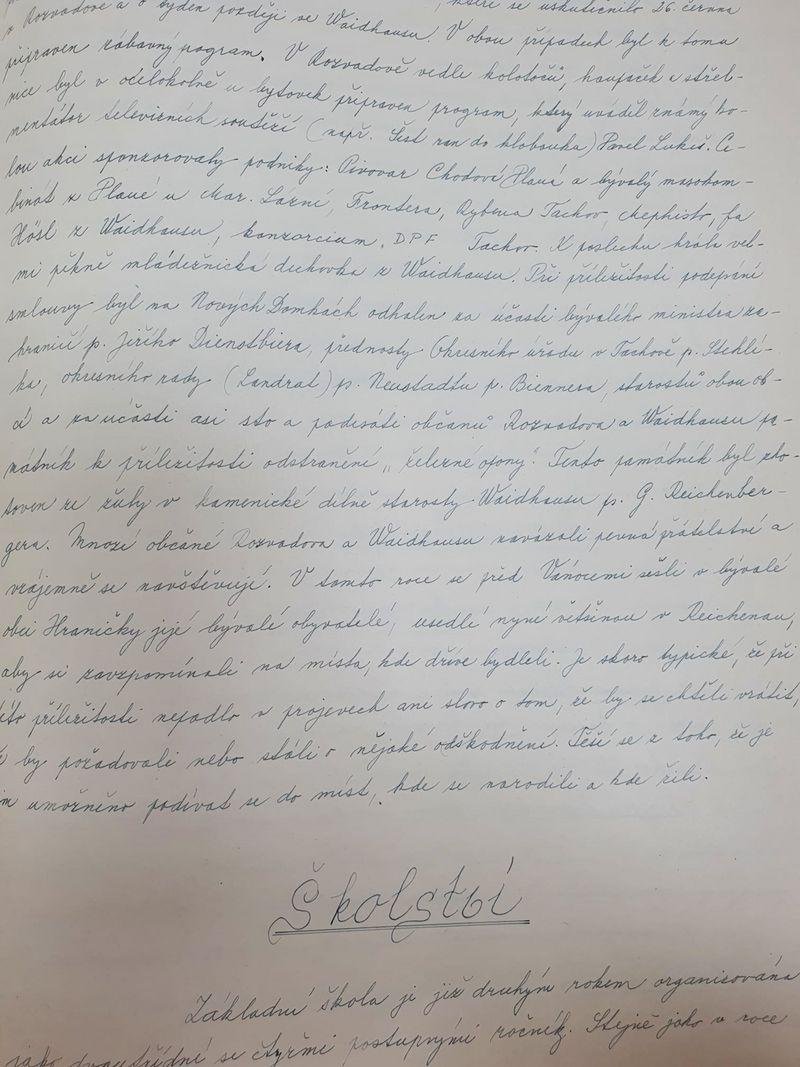 v Rozvadově a o týden později ve Waidhausu. V obou případech byl k tomu
které se uskutečnilo 26. června
připraven zábavný program. V Rozvadově vedle kolotočů, houpaček a střel-
nice byl v okolí u bytovek připraven program, který uváděl známý ko-
mentátor televizních soutěží (např. Šest ran do klobouku) Pavel Lukeš. Ce-
lou akci sponzorovaly podniky: Pivovar Chodová Planá a bývalý masokom-
binát z Plané u Mar. Lázní, Frontera, Rybena Tachov, Mephisto, fa
Hösl z Waidhausu, konzorcium, DPF Tachov. K poslechu hrála vel-
mi pěkně mládežnická dechovka z Waidhausu. Při příležitosti podepsání
smlouvy byl na Nových Domkách odhalen za účasti bývalého ministra za-
hraničí p. Jiřího Dienstbiera, přednosty Okresního úřadu v Tachově p. Stehlí-
ka, okresního rady (Landrat) p. Neustadtu p. Biennera, starostů obou ob-
cí a za účasti asi sto a padesáti občanů Rozvadova a Waidhausu pa-
mátník k příležitosti odstranění „železné opony". Tento památník byl zho-
toven ze žuly v kamenické dílně starosty Waidhausu p. G. Reichenber-
gera. Mnozí občané Rozvadova a Waidhausu navázali pevná přátelství a
vzájemně se navštěvují. V tomto roce se před Vánocemi sešli v bývalé
obci Hraničky její bývalé obyvatelé, usedlé nyní většinou v Reichenau,
aby si zavzpomínali na místa, kde dříve bydleli. Je skoro typické, že při
této příležitosti nepadlo v projevech ani slovo o tom, že by se chtěli vrátit,
by požadovali nebo stáli o nějaké odškodnění. Těší se z toho, že je
im umožněno podívat se do míst, kde se narodili a kde žili.
Školství
Základní škola je již druhým rokem organisována
jako dvoutřídní se čtyřmi postupnými ročník. Stejně jako v roce